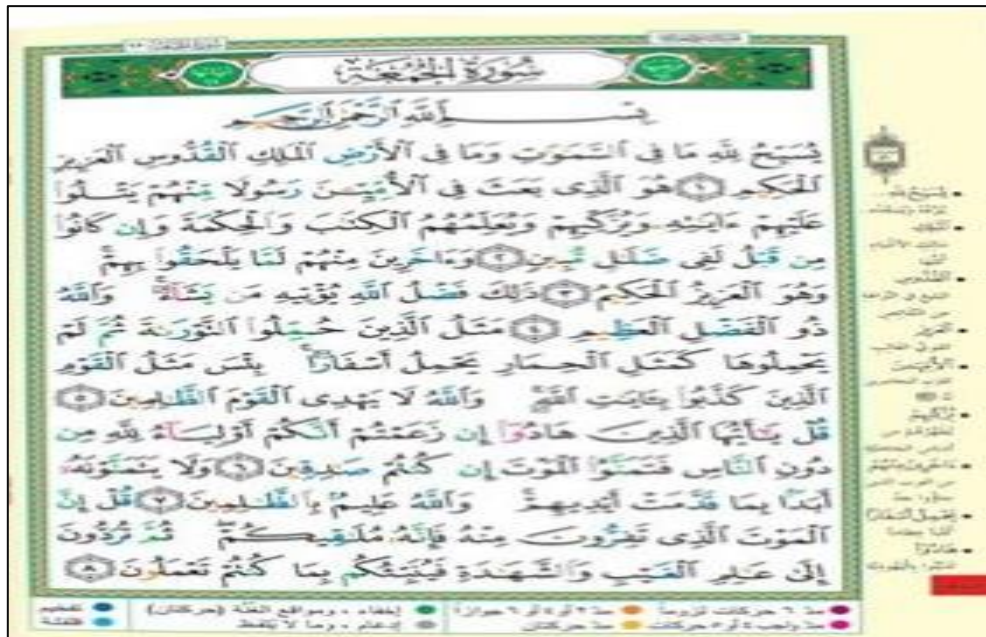 سُورَةُ الْجُمُعَةِ
بِسْمِ اللَّهِ الرَّحْمَٰنِ الرَّحِيمِ
يُسَبِّحُ لِلَّهِ مَا فِي السَّمَٰوَٰتِ وَمَا فِي الْأَرْضِ الْمَلِكِ الْقُدُّوسِ الْعَزِيزِ
الْحَكِيمِ ١ هُوَ الَّذِي بَعَثَ فِي الْأُمِّيِّينَ رَسُولًا مِنْهُمْ يَتْلُوا
عَلَيْهِمْ ءَايَٰتِهِ وَيُزَكِّيهِمْ وَيُعَلِّمُهُمُ الْكِتَٰبَ وَالْحِكْمَةَ وَإِن كَانُوا
مِن قَبْلُ لَفِي ضَلَٰلٍ مُّبِينٍ ٢ وَءَاخَرِينَ مِنْهُمْ لَمَّا يَلْحَقُوا بِهِمْ
وَهُوَ الْعَزِيزُ الْحَكِيمُ ٣ ذَٰلِكَ فَضْلُ اللَّهِ يُؤْتِيهِ مَن يَشَاءُ وَاللَّهُ
ذُو الْفَضْلِ الْعَظِيمِ ٤ مَثَلُ الَّذِينَ حُمِّلُوا التَّوْرَىٰةَ ثُمَّ لَمْ
يَحْمِلُوهَا كَمَثَلِ الْحِمَارِ يَحْمِلُ أَسْفَارًا بِئْسَ مَثَلُ الْقَوْمِ
الَّذِينَ كَذَّبُوا بِـَٔايَٰتِ اللَّهِ وَاللَّهُ لَا يَهْدِي الْقَوْمَ الظَّٰلِمِينَ ٥
قُلْ يَٰٓأَيُّهَا الَّذِينَ هَادُوٓا إِن زَعَمْتُمْ أَنَّكُمْ أَوْلِيَآءُ لِلَّهِ مِن
دُونِ النَّاسِ فَتَمَنَّوُا الْمَوْتَ إِن كُنتُمْ صَٰدِقِينَ ٦ وَلَا يَتَمَنَّوْنَهُ
أَبَدًا بِمَا قَدَّمَتْ أَيْدِيهِمْ وَاللَّهُ عَلِيمٌ بِالظَّٰلِمِينَ ٧ قُلْ إِنَّ
الْمَوْتَ الَّذِي تَفِرُّونَ مِنْهُ فَإِنَّهُ مُلَٰقِيكُمْ ثُمَّ تُرَدُّونَ
إِلَىٰ عَٰلِمِ الْغَيْبِ وَالشَّهَٰدَةِ فَيُنَبِّئُكُم بِمَا كُنتُمْ تَعْمَلُونَ ٨
مد ٦ حركات لزوماً مد ٢ أو ٤ أو ٦ جوازاً إخفاء، ومواقع الغنة (حركتان) تفخيم
مد واجب ٤ أو ٥ حركات مد حركتان إدغام، وما لا يلفظ قلقلة
يُسَبِّحُ لِلَّهِ
الْقُدُّوسِ
الْعَزِيزِ
الْأُمِّيِّينَ
يُزَكِّيهِمْ
يَحْمِلُ أَسْفَارًا
هَادُوا